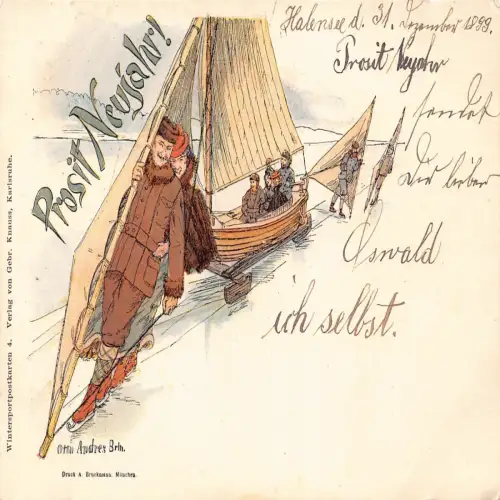 Halensee d. 31. Dezember 1899.
Prosit Neujahr!
Prosit Neujahr
sendet
Dir lieber
Oswald
ich selbst.
Wintersportpostkarten 4. Verlag von Gebr. Knauss, Karlsruhe.
Otto Andres Brln.
Druck A. Bruckmann, München.